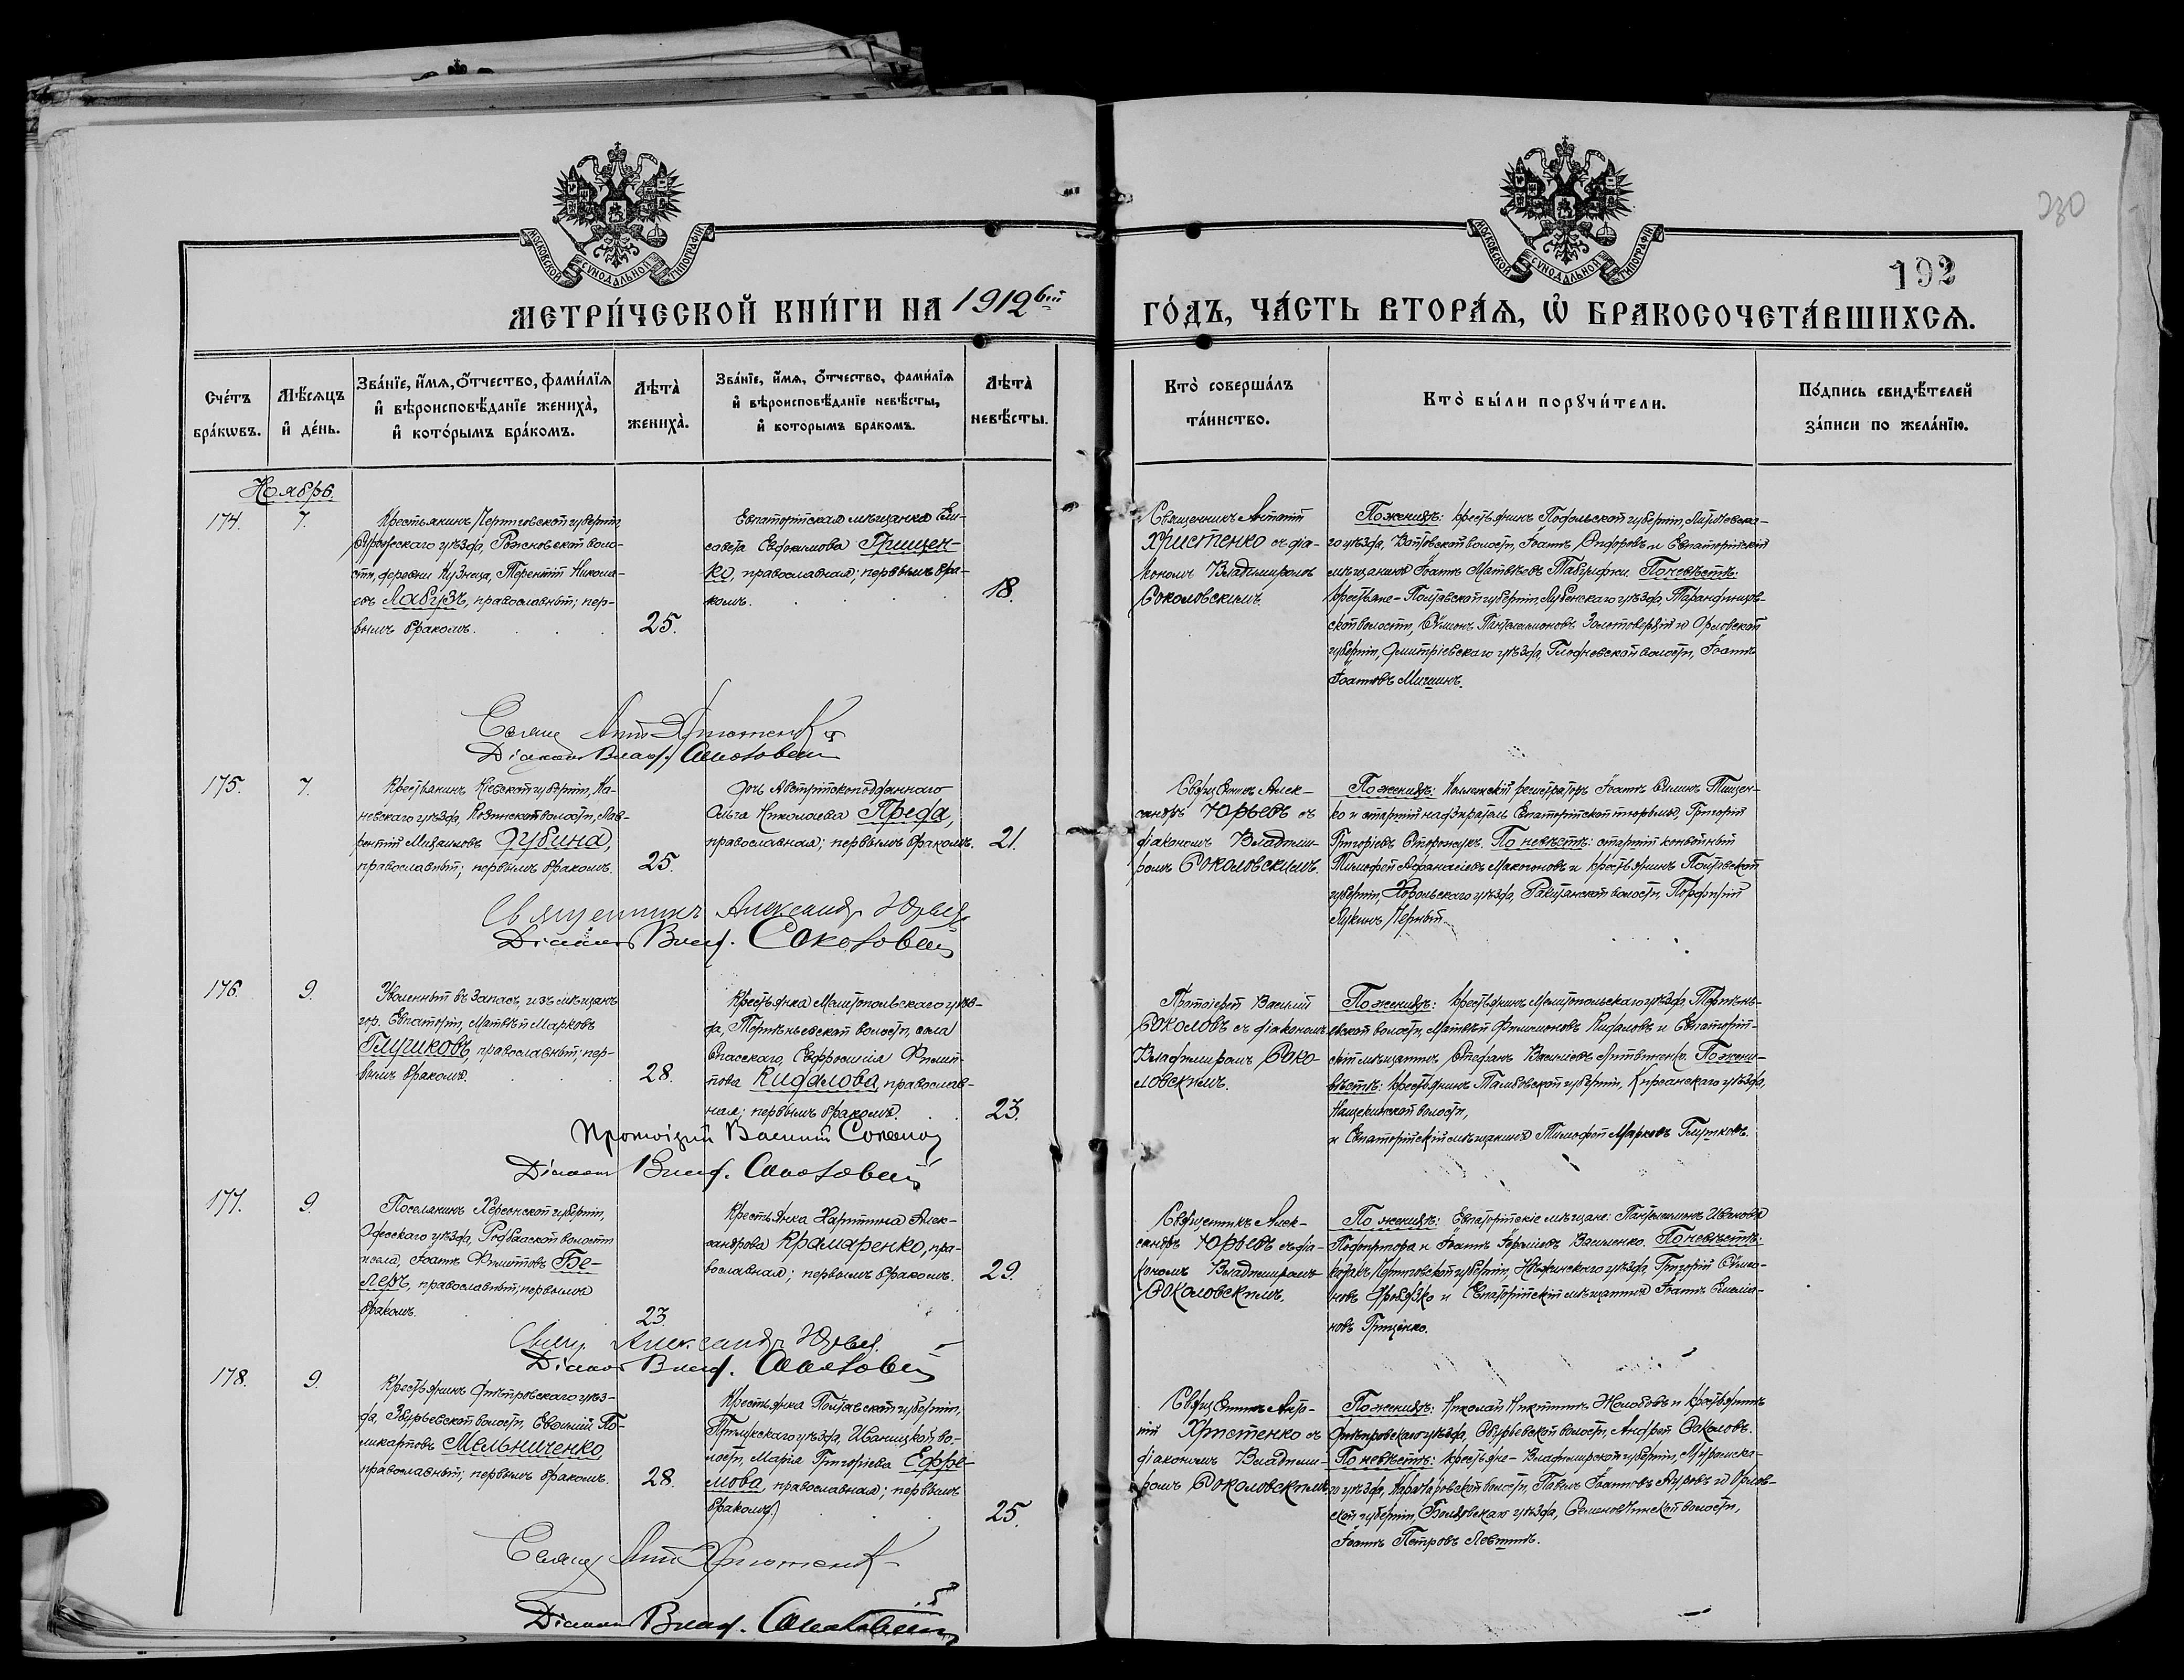 230
192
МОСКОВСКОЙ СѴНОДАЛЬНОЙ ТИПОГРАФІИ
МОСКОВСКОЙ СѴНОДАЛЬНОЙ ТИПОГРАФІИ
МЕТРИ́ЧЕСКОЙ КНИ́ГИ НА 1912 ГО́ДЪ, ЧА́СТЬ ВТОРА́Ѧ, Ѡ҆ БРАКОСОЧЕТА́ВШИХСѦ.
Сче́тъ бра́кѡвъ.
Мѣ́сѧцъ и҆ де́нь.
Зва́нїе, и҆́мѧ, ѻ҆́тчество, фами́лїѧ и҆ вѣроисповѣ́данїе жениха̀, и҆ кото́рымъ бра́комъ.
Лѣта̀ жениха̀.
Зва́нїе, и҆́мѧ, ѻ҆́тчество, фами́лїѧ и҆ вѣроисповѣ́данїе невѣ́сты, и҆ которымъ бракомъ.
Лѣта̀ невѣ́сты.
Кто̀ соверша́лъ та́инство.
Кто̀ бы́ли порꙋчи́тели.
По́дпись свидѣ́телей за́писи по жела́нїю.
Ноябрь
174.
7.
Крестьянинъ Черниговской губерніи
уѣзда, Рожновской воло-
сти, деревни Терентій Никола-
евъ Лабузъ, православный; пер-
вымъ бракомъ.
25.
Евпаторійская мѣщанка Ели-
савета Евфимова Грицен-
ко, православная; первымъ бра-
комъ.
18.
Священникъ Антоній
Христенко съ діа-
кономъ Владиміромъ
Соколовскимъ.
По женихѣ: крестьянинъ Подольской губерніи,
го уѣзда, волости, Іоаннъ и Евпаторійскій
мѣщанинъ Іоаннъ Матвѣевъ По невѣстѣ:
крестьяне - Полтавской губерніи, Лубенскаго уѣзда,
ской волости, Пантелеимоновъ и Орловской
губерніи, Дмитріевскаго уѣзда, волости, Іоаннъ
Іоанновъ Мишинъ.
175.
7.
Крестьянинъ Кіевской губерніи, Ка-
невскаго уѣзда, волости, Лав-
рентій Михаиловъ Дубина,
православный; первымъ бракомъ.
25.
Дочь Австрійскоподданнаго
Ольга Николаева Преда,
православная; первымъ бракомъ.
21.
Священникъ Алек-
сандръ Юрьевъ съ
діакономъ Владими-
ромъ Соколовскимъ.
По женихѣ: Коллежскій регистраторъ Іоаннъ Тищен-
ко и старшій надзиратель Евпаторійской тюрьмы, Григорій
Григорьевъ Сторожукъ. По невѣстѣ: старшій конвойный
Тимофей Афанасіевъ Макогоновъ и крестьянинъ Полтавской
губерніи, Хорольскаго уѣзда, волости, Порфирій
Лукинъ Черный.
Священникъ Александръ Юрьевъ
Діаконъ Влад. Соколовскій
176.
9.
Уволенный въ запасъ, изъ мѣщанъ
гор. Евпаторіи, Матвѣй Марковъ
Глушковъ, православный; пер-
вымъ бракомъ.
28.
Крестьянка Мелитопольскаго уѣз-
да, волости, села
Спасскаго, Евфросинія Филип-
пова Кидалова, православ-
ная; первымъ бракомъ.
23.
Протоіерей Василій
Соколовъ съ діакономъ
Владиміромъ Соко-
ловскимъ.
По женихѣ: крестьянинъ Мелитопольскаго уѣзда,
волости, Матвѣй Филимоновъ Кидаловъ и Евпаторій-
скій мѣщанинъ Стефанъ Василіевъ По
невѣстѣ: крестьянинъ Тамбовской губерніи, Кирсанскаго уѣзда,
волости,
и Евпаторійскій мѣщанинъ Тимофей Марковъ Глушковъ.
Протоіерей Василій Соколовъ
Діаконъ Влад. Соколовскій
177.
9.
Поселянинъ Херсонской губерніи,
Одесскаго уѣзда, волости
и села, Іоаннъ Филипповъ Бе-
леръ, православный; первымъ
бракомъ.
23.
Крестьянка Харитина Алек-
сандрова Крамаренко, пра-
вославная; первымъ бракомъ.
29.
Священникъ Алек-
сандръ Юрьевъ съ діа-
кономъ Владиміромъ
Соколовскимъ.
По женихѣ: Евпаторійскіе мѣщане: Пантелеимонъ Ивановъ
и Іоаннъ Василенко. По невѣстѣ:
казакъ Черниговской губерніи, Нѣжинскаго уѣзда, Григорій
новъ и Евпаторійскій мѣщанинъ Іоаннъ
новъ Гриценко.
Свящ. Александръ Юрьевъ
Діаконъ Влад. Соколовскій
178.
9.
Крестьянинъ Днѣпровскаго уѣз-
да, Збурьевской волости, Евфимій По-
ликарповъ Мельниченко,
православный; первымъ бракомъ.
28.
Крестьянка Полтавской губерніи,
Прилукскаго уѣзда, Иваницкой во-
лости, Марія Григоріева Ефре-
мова, православная; первымъ
бракомъ.
25.
Священникъ Анто-
ній Христенко съ
діакономъ Владими-
ромъ Соколовскимъ
По женихѣ: Николай Никитинъ Жолобовъ и крестьянинъ
Днѣпровскаго уѣзда, Збурьевской волости, Андрей Соколовъ.
По невѣстѣ: крестьяне - Владимірской губерніи, Муромска-
го уѣзда, волости, Павелъ Іоанновъ и Орлов-
ской губерніи, Болховскаго уѣзда, волости,
Іоаннъ Петровъ Левшинъ.
Діаконъ Влад. Соколовскій